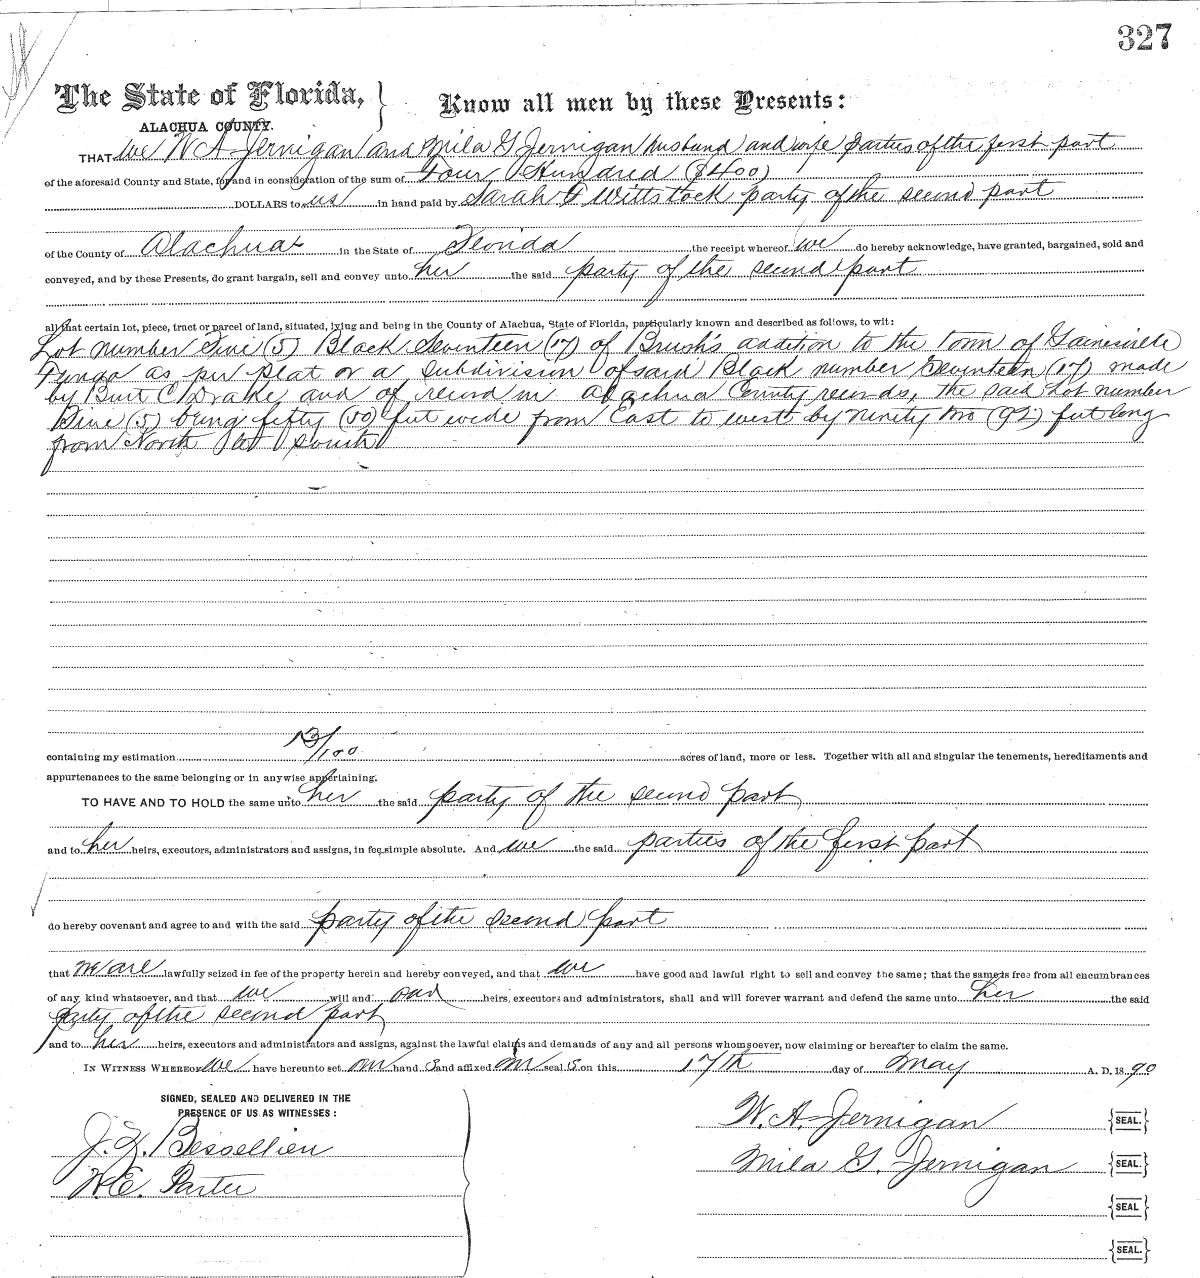 327
The State of Florida, } Know all men by these Presents:
ALACHUA COUNTY.
THAT We W A Jernigan and Mila G Jernigan husband and wife Parties of the first part
of the aforesaid County and State, for and in consideration of the sum of Four Hundred ($400)
DOLLARS to us in hand paid by Sarah F Wittstock party of the second part
of the County of Alachua in the State of Florida the receipt whereof we do hereby acknowledge, have granted, bargained, sold and
conveyed, and by these Presents, do grant bargain, sell and convey unto her the said party of the second part
all that certain lot, piece, tract or parcel of land, situated, lying and being in the County of Alachua, State of Florida, particularly known and described as follows, to wit:
Lot number Five (5) Block Seventeen (17) of Brush's addition to the Town of Gainesville
as per plat or a subdivision of said Block number Seventeen (17) made
by Burt C Drake and of record in Alachua County records, the said Lot number
Five (5) being fifty (50) feet wide from East to west by ninety two (92) feet long
from North to South
containing my estimation 13/100 acres of land, more or less. Together with all and singular the tenements, hereditaments and
appurtenances to the same belonging or in anywise appertaining.
TO HAVE AND TO HOLD the same unto her the said party of the second part
and to her heirs, executors, administrators and assigns, in fee simple absolute. And we the said parties of the first part
do hereby covenant and agree to and with the said party of the second part
that we are lawfully seized in fee of the property herein and hereby conveyed, and that we have good and lawful right to sell and convey the same; that the same is free from all encumbrances
of any kind whatsoever, and that we will and our heirs, executors and administrators, shall and will forever warrant and defend the same unto her the said
party of the second part
and to her heirs, executors and administrators and assigns, against the lawful claims and demands of any and all persons whomsoever, now claiming or hereafter to claim the same.
IN WITNESS WHEREOF we have hereunto set our hand s and affixed our seal s on this 17th day of May A. D. 1890
SIGNED, SEALED AND DELIVERED IN THE
PRESENCE OF US AS WITNESSES:
W. A. Jernigan {SEAL.}
J. Bessellieu
Mila G. Jernigan {SEAL.}
W.E. Parter
{SEAL}
{SEAL.}